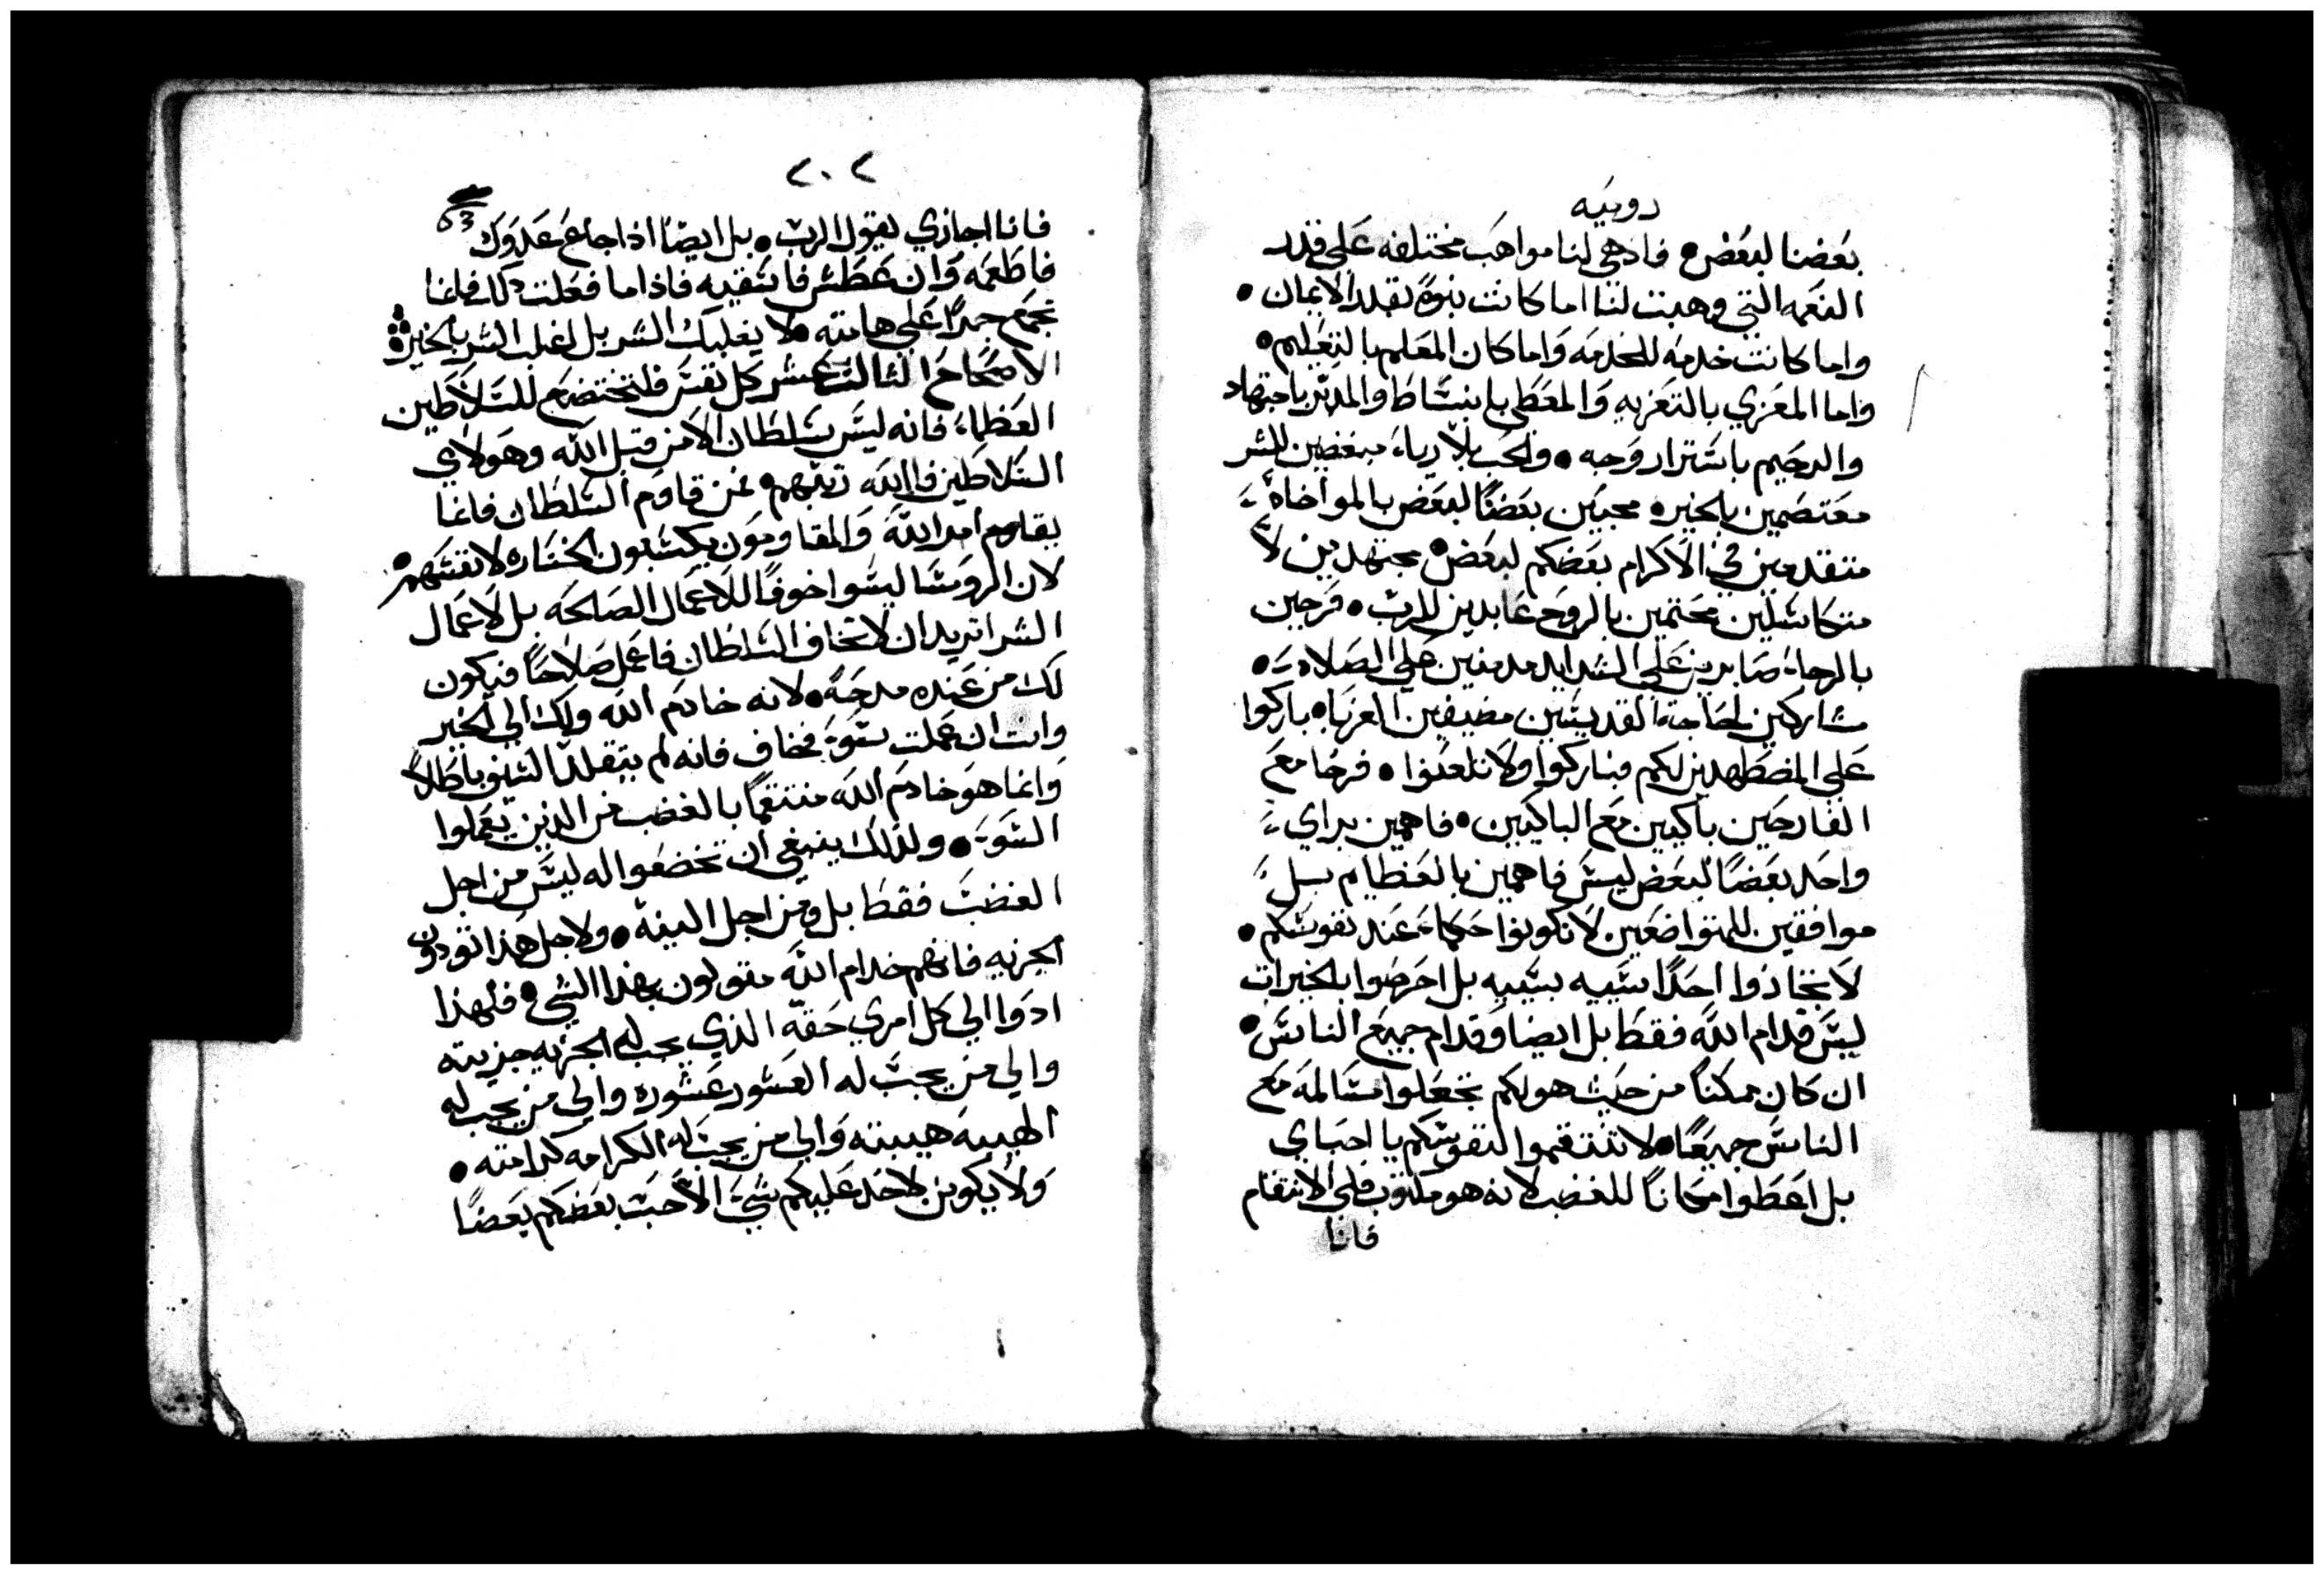 روميه
بعضنا لبعض • فاد هي لنا مواهب مختلفه على قدر
النعمه التي وهبت لنا اما كانت بنوة بقدر الايمان •
واما كانت خدمه للخدمه واما كان المعلم بالتعليم •
واما المعزي بالتعزيه والمعطي بانبساط والمدبر باجتهاد
والرحيم باستزار وجبه • والحب بلا رياء مبغضين للشر
معتصمين بالخير • محبين بعضنا لبعض بالمواخاة
متقدمين في الاكرام بعضكم لبعض • مجتهدين لا
متكاسلين محتمين بالروح عابدين للرب • فرحين
بالرجاء صابرين على الشدايد مدمنين على الصلاة •
مشاركين لحاجة القديسين مضيفين الغربا • باركوا
على المضطهدين لكم فباركوا ولا تلعنوا • فرحا مع
الفارحين باكيين مع الباكيين • فاهمين براي
واحد بعضا لبعض ليس فاهمين بالعظايم بل
موافقين للمتواضعين لا تكونوا حكماء عند نفوسكم •
لا تجاذوا احدا سييه بسييه بل احرصوا بالخيرات
ليس قدام الله فقط بل ايضا وقدام جميع الناس •
ان كان ممكنا من حيث هو لكم تجعلوا مسالمه مع
الناس جميعا • لا تنتقموا لنفوسكم يا احباي
بل اعطوا مكانا للغضب لانه هو مكتوب لي الانتقام
فانا
٢٠٢
فانا اجازي يقول الرب • بل ايضا اذا جاع عدوك
فاطعمه وان عطش فاسقيه فاذا ما فعلت ذلك فانما
تجمع جمرا على هامته • لا يغلبك الشر بل اغلب الشر بالخير
الاصحاح الثالث عشر كل نفس فلتختضع للسلاطين
العظماء فانه ليس سلطان الا من قبل الله وهولاي
السلاطين فالله رتبهم • فمن قاوم السلطان فانما
يقاوم امر الله والمقاومون يكسبون الخساره لانفسهم •
لان الروسا ليسوا خوفا للاعمال الصالحه بل لاعمال
الشر اتريد ان لا تخاف السلطان فاعمل صلاحا فيكون
لك من عنده مدحة • لانه خادم الله ولك الي الخير
وانت ان عملت سوء فخاف فانه لم يتقلد السيف باطلا
وانما هو خادم الله منتقما بالغضب من الذين يعملوا
السوء • ولذلك ينبغي ان تخضعوا له ليس من اجل
الغضب فقط بل ومن اجل النية • ولاجل هذا تودون
الجزيه فانهم خدام الله متولون بهذا الشي • فلهذا
ادوا الي كل امري حقه الذي يجب له الجزيه جزيته
والي من يجب له العشور عشوره والي من يجب له
الهيبه هيبته والي من يجب له الكرامه كرامته •
ولا يكون لاحد عليكم شي الا حب بعضكم بعضا